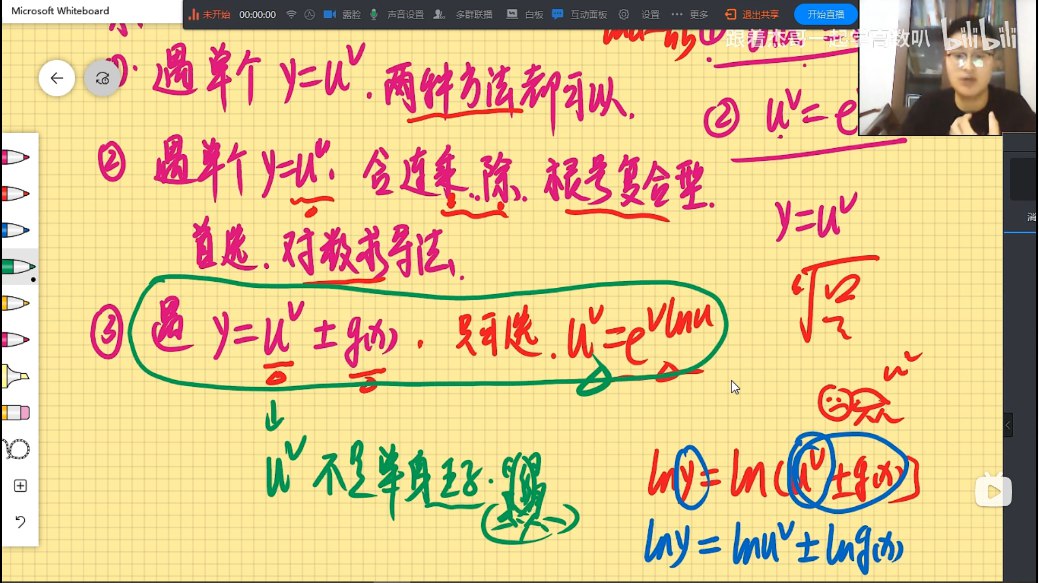 Microsoft Whiteboard
未开始 00:00:00 露脸 声音设置 多群联播 白板 互动面板 设置 更多 退出共享 开始直播
跟着杰哥一起学高数叭 bilibili
①. 遇单个 y=u^v. 两种方法都可以.
② u^v=e
② 遇单个 y=u^v. 含连乘.除. 根号复合型.
首选. 对数求导法.
y=u^v
③ 遇 y=u^v ± g(x). 只可选. u^v=e^{vlnu}
↓
u^v 不是单身王子.
lny=ln(u^v±g(x)]
lny=lnu^v±lng(x)